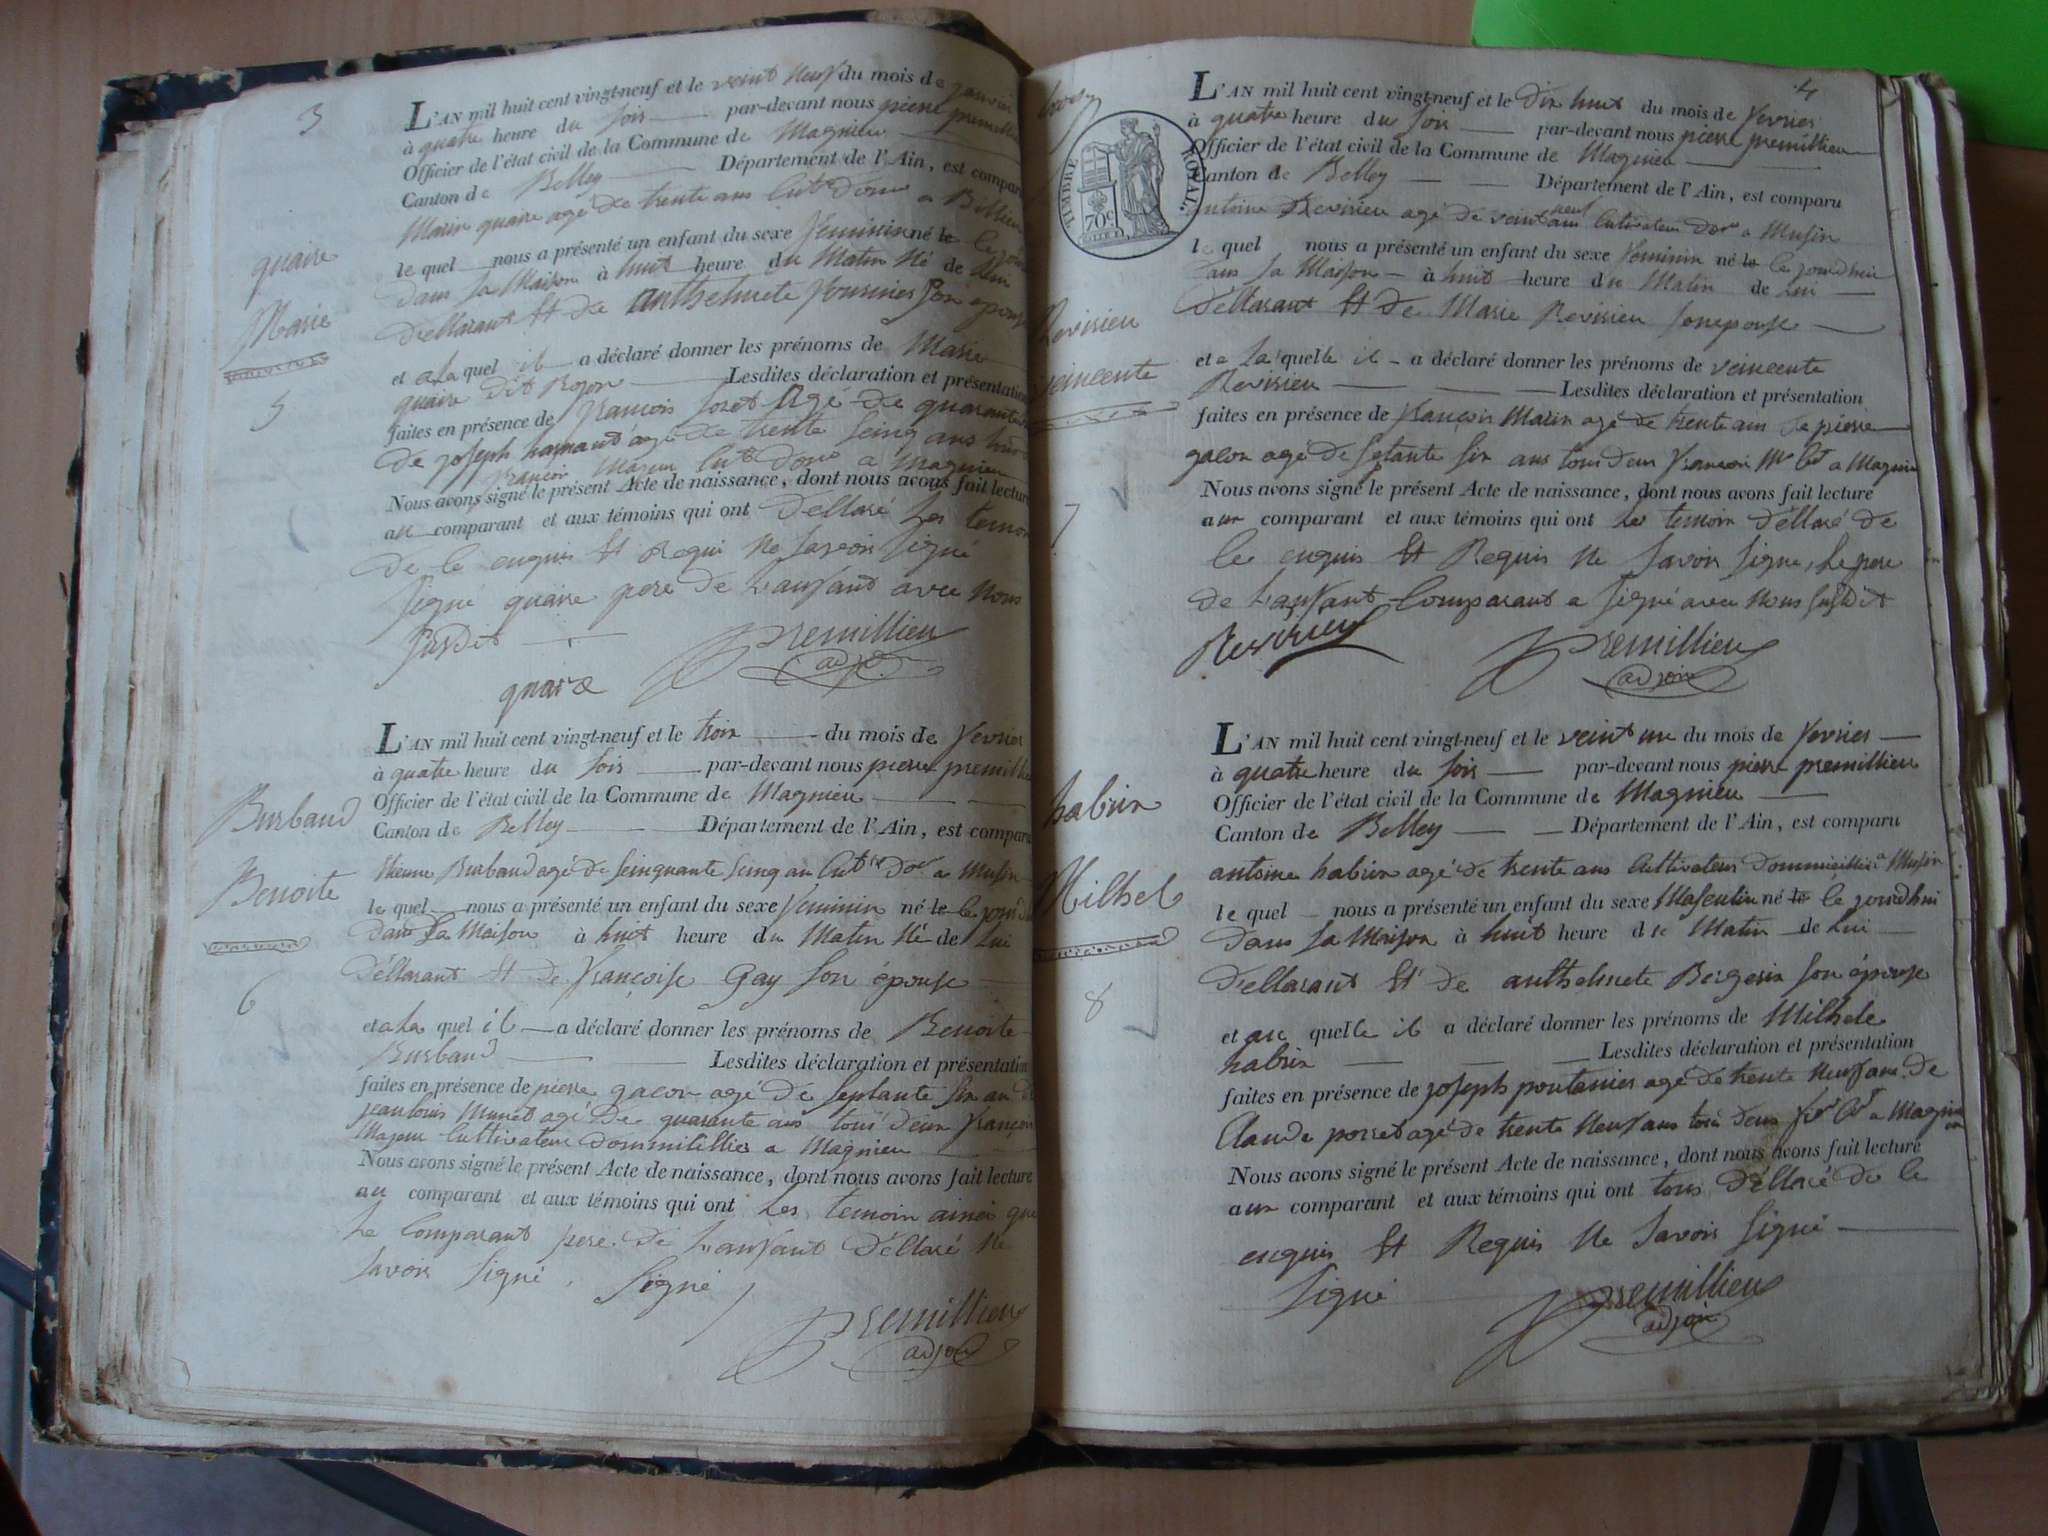 3
L'AN mil huit cent vingt-neuf et le veint neuf du mois de janvier
à quatre heure du soir par-devant nous pierre premillieu
Officier de l'état civil de la Commune de Magnieu
Canton de Belley Département de l'Ain, est comparu
Marin quaire agé de trente ans Cult Dom a
le quel nous a présenté un enfant du sexe feminin né le
dans sa Maison à huit heure du Matin Né de Lui
Déllarant Et de anthelmete son épouse
quaire
Marie
5
et a la quel il a déclaré donner les prénoms de Marie
quaire Dit Lesdites déclaration et présentation
faites en présence de françois agé de quarante
de joseph agé de trente seinq ans
françois Majeur Cult Dom a Magnieu
Nous avons signé le présent Acte de naissance, dont nous avons fait lecture
au comparant et aux témoins qui ont Déllaré Les temoin
De le enquis Et Requi Ne savoir signé
signé quaire pere de L'anfant avec Nous
susdit
quaire Premillieu
adj
L'AN mil huit cent vingt-neuf et le troix du mois de fevrier
à quatre heure du soir par-devant nous pierre premillieu
Officier de l'état civil de la Commune de Magnieu
Canton de Belley Département de l'Ain, est comparu
Burbaud
Benoite
6
Burbaud agé de seinquante seinq an Cult Dom a Musin
le quel nous a présenté un enfant du sexe feminin né le
dans sa Maison à huit heure du Matin Né de Lui
Déllarant Et de françoise Gay son épouse
et a La quel il a déclaré donner les prénoms de Benoite
Burbaud Lesdites déclaration et présentation
faites en présence de pierre gacon agé de septante six an de
jean louis Munet agé de quarante ans tous deux françois
Majeur Cultivateur Dommitillié a Magnieu
Nous avons signé le présent Acte de naissance, dont nous avons fait lecture
au comparant et aux témoins qui ont Les temoin ainsi que
Le Comparant pere de L'anfant Déllaré Ne
savoir signé, signé
Premillieu
adjoin
4
TIMBRE ROYAL
70c
L'AN mil huit cent vingt-neuf et le dix huit du mois de fevrier
à quatre heure du soir par-devant nous pierre premillieu
Officier de l'état civil de la Commune de Magnieu
Canton de Belley Département de l'Ain, est comparu
antoine Revirieu agé de veint neuf ans Cultivateur Dom a Musin
le quel nous a présenté un enfant du sexe feminin né le le jourdhui
dans sa Maison à huit heure du Matin de Lui
Déllarant Et de Marie Revirieu son epouse
Revirieu
veincente
7
et a la quelle il a déclaré donner les prénoms de veincente
Revirieu Lesdites déclaration et présentation
faites en présence de françois Marin agé de trente ans de pierre
gacon agé de septante six ans tous deux françois a Magnieu
Nous avons signé le présent Acte de naissance, dont nous avons fait lecture
aux comparant et aux témoins qui ont Les temoin Déllaré de
le enquis Et Requis Ne savoir signe, Le pere
de L'anfant Comparant a signé avec Nous susdit
Revirieu Premillieu
adjoin
L'AN mil huit cent vingt-neuf et le veint un du mois de fevrier
à quatre heure du soir par-devant nous pierre premillieu
Officier de l'état civil de la Commune de Magnieu
Canton de Belley Département de l'Ain, est comparu
habrix
Milhele
8
antoine habrix agé de trente ans Cultivateur Dommicillié a Musin
le quel nous a présenté un enfant du sexe Masculin né le le jourdhui
dans sa Maison à huit heure du Matin de Lui
Déllarant Et de anthelmete Bergerix son épouse
et au quelle il a déclaré donner les prénoms de Milhele
habrix Lesdites déclaration et présentation
faites en présence de joseph agé de trente Neuf ans de
Claude porret agé de trente Neuf ans tous deux a Magnieu
Nous avons signé le présent Acte de naissance, dont nous avons fait lecture
aux comparant et aux témoins qui ont tous Déllaré de le
enquis Et Requis Ne savoir signé
signé Premillieu
adjoin